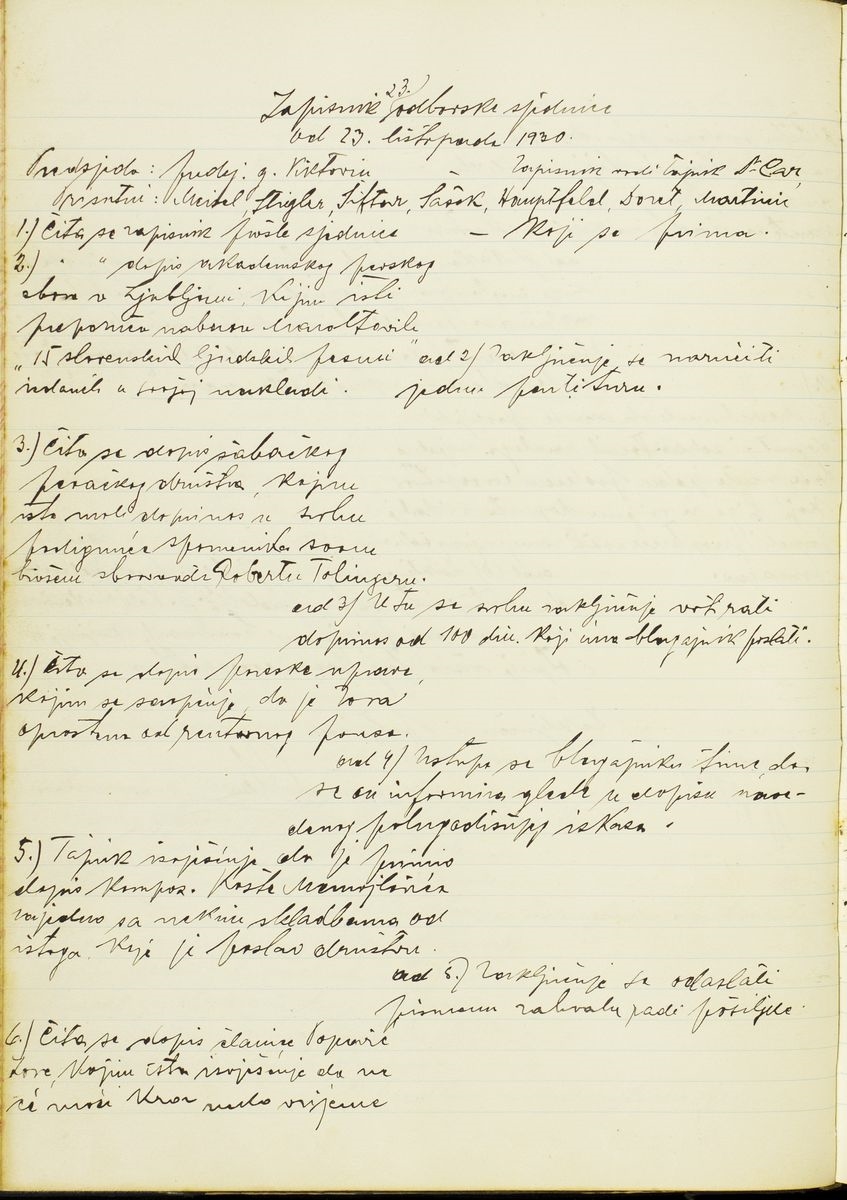 Zapisnik 23. odborske sjednice
od 23. listopada 1930.
Predsjeda: g. Viktorin Zapisnik vodi tajnik Dr Car,
Prisutni: Meisel, Stiglar, Šiftar, Šašek, Hauptfeld, Doret, Martinić
1.) Čita se zapisnik prošle sjednice — koji se prima.
2.) " " dopis akademskog pevskog
zbora v Ljubljani, kojim isti
preporuča nabavu Maroltovih
„15 slovenskih ljudskih pesmi" ad 2) Zaključuje se naručiti
izdanih u svojoj nakladi. jednu partituru.
3.) Čita se dopis šabačkog
pevačkog društva, kojim
isto moli doprinos u svrhu
podignuća spomenika svom
bivšem zborovođi Robertu Tolingeru.
ad 3) U tu se svrhu zaključuje votirati
doprinos od 100 din. koji ima blagajnik poslati.
4.) Čita se dopis poreske uprave,
kojim se saopćuje, da je Zora
oproštena od rentovnog poreza.
ad 4) Ustupa se blagajniku time, da
se on informira glede u dopisu nave-
denog polugodišnjeg iskaza.
5.) Tajnik izvješćuje da je primio
dopis kompoz. Koste Manojlovića
zajedno sa nekim skladbama od
istoga, koje je poslao društvu.
ad 5.) Zaključuje se odaslati
pismenu zahvalu radi pošiljke.
6.) Čita se dopis članice Popović
Zore, kojim ista izvješćuje da ne
će moći kroz neko vrijeme